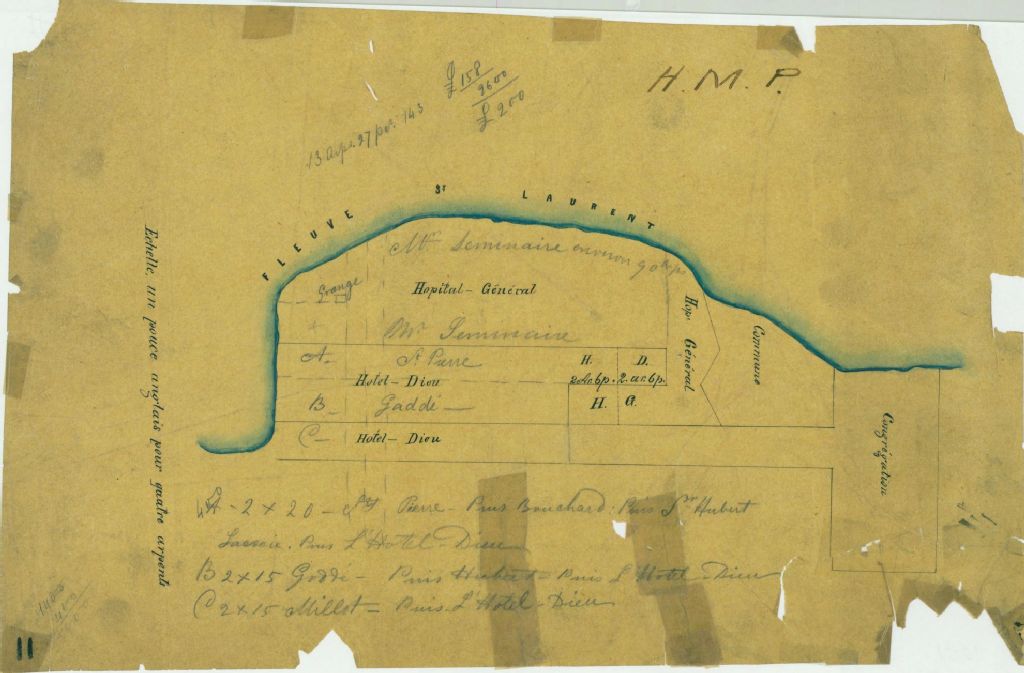 £ 158
9600
£ 200
H. M. P.
13 arps. 27 per. 143
FLEUVE ST LAURENT
Mr. Seminaire environ 90
Grange
Hopital - Général
Mr. Seminaire
A - St Pierre
Hotel - Dieu
B - Gaddé -
C - Hotel - Dieu
H. D.
2 Ar. 6 p. 2. ar. 6 p.
H. G.
Hop. Général
Commune
Congrégation
Echelle, un pouce anglais pour quatre arpents
A - 2 x 20 - St Pierre - Puis Bouchard: Puis Hubert
Lacroix. Puis L'Hotel - Dieu
B 2 x 15 Goddé - Puis Hubert - Puis L'Hotel - Dieu
C 2 x 15 Millot = Puis L'Hotel - Dieu
11